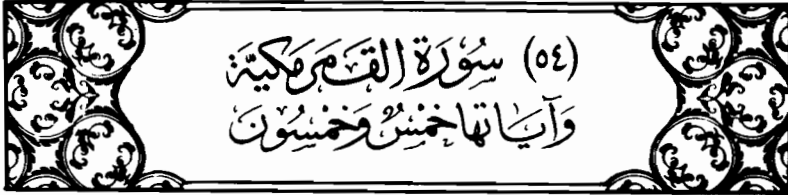 (٥٤) سُورَة القَمَر مَكيَّة
وَآيَاتهَا خَمْسٌ وَخَمْسُونَ